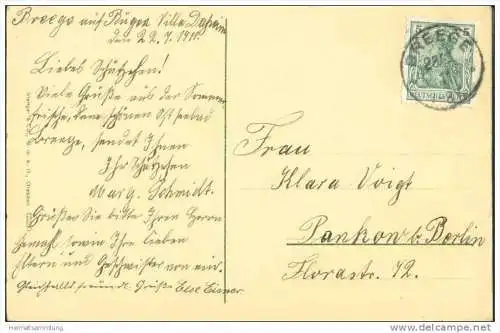 Breege auf Rügen Villa Daheim
den 22.7.1911.
Liebes Schützchen!
Viele Grüße aus der Sommer
frische, dem schönen Ostseebad
Breege, sendet Ihnen
Ihr Schützchen
Marg. Schmidt.
Grüßen Sie bitte Ihren Herrn
Gemahl sowie Ihre lieben
Eltern und Geschwister von mir.
Gleichfalls freundl. Grüße Else
BREEGE
22
DEUTSCHES
Frau
Klara Voigt
Pankow b. Berlin
Florastr. 42.
Heimatsammlung